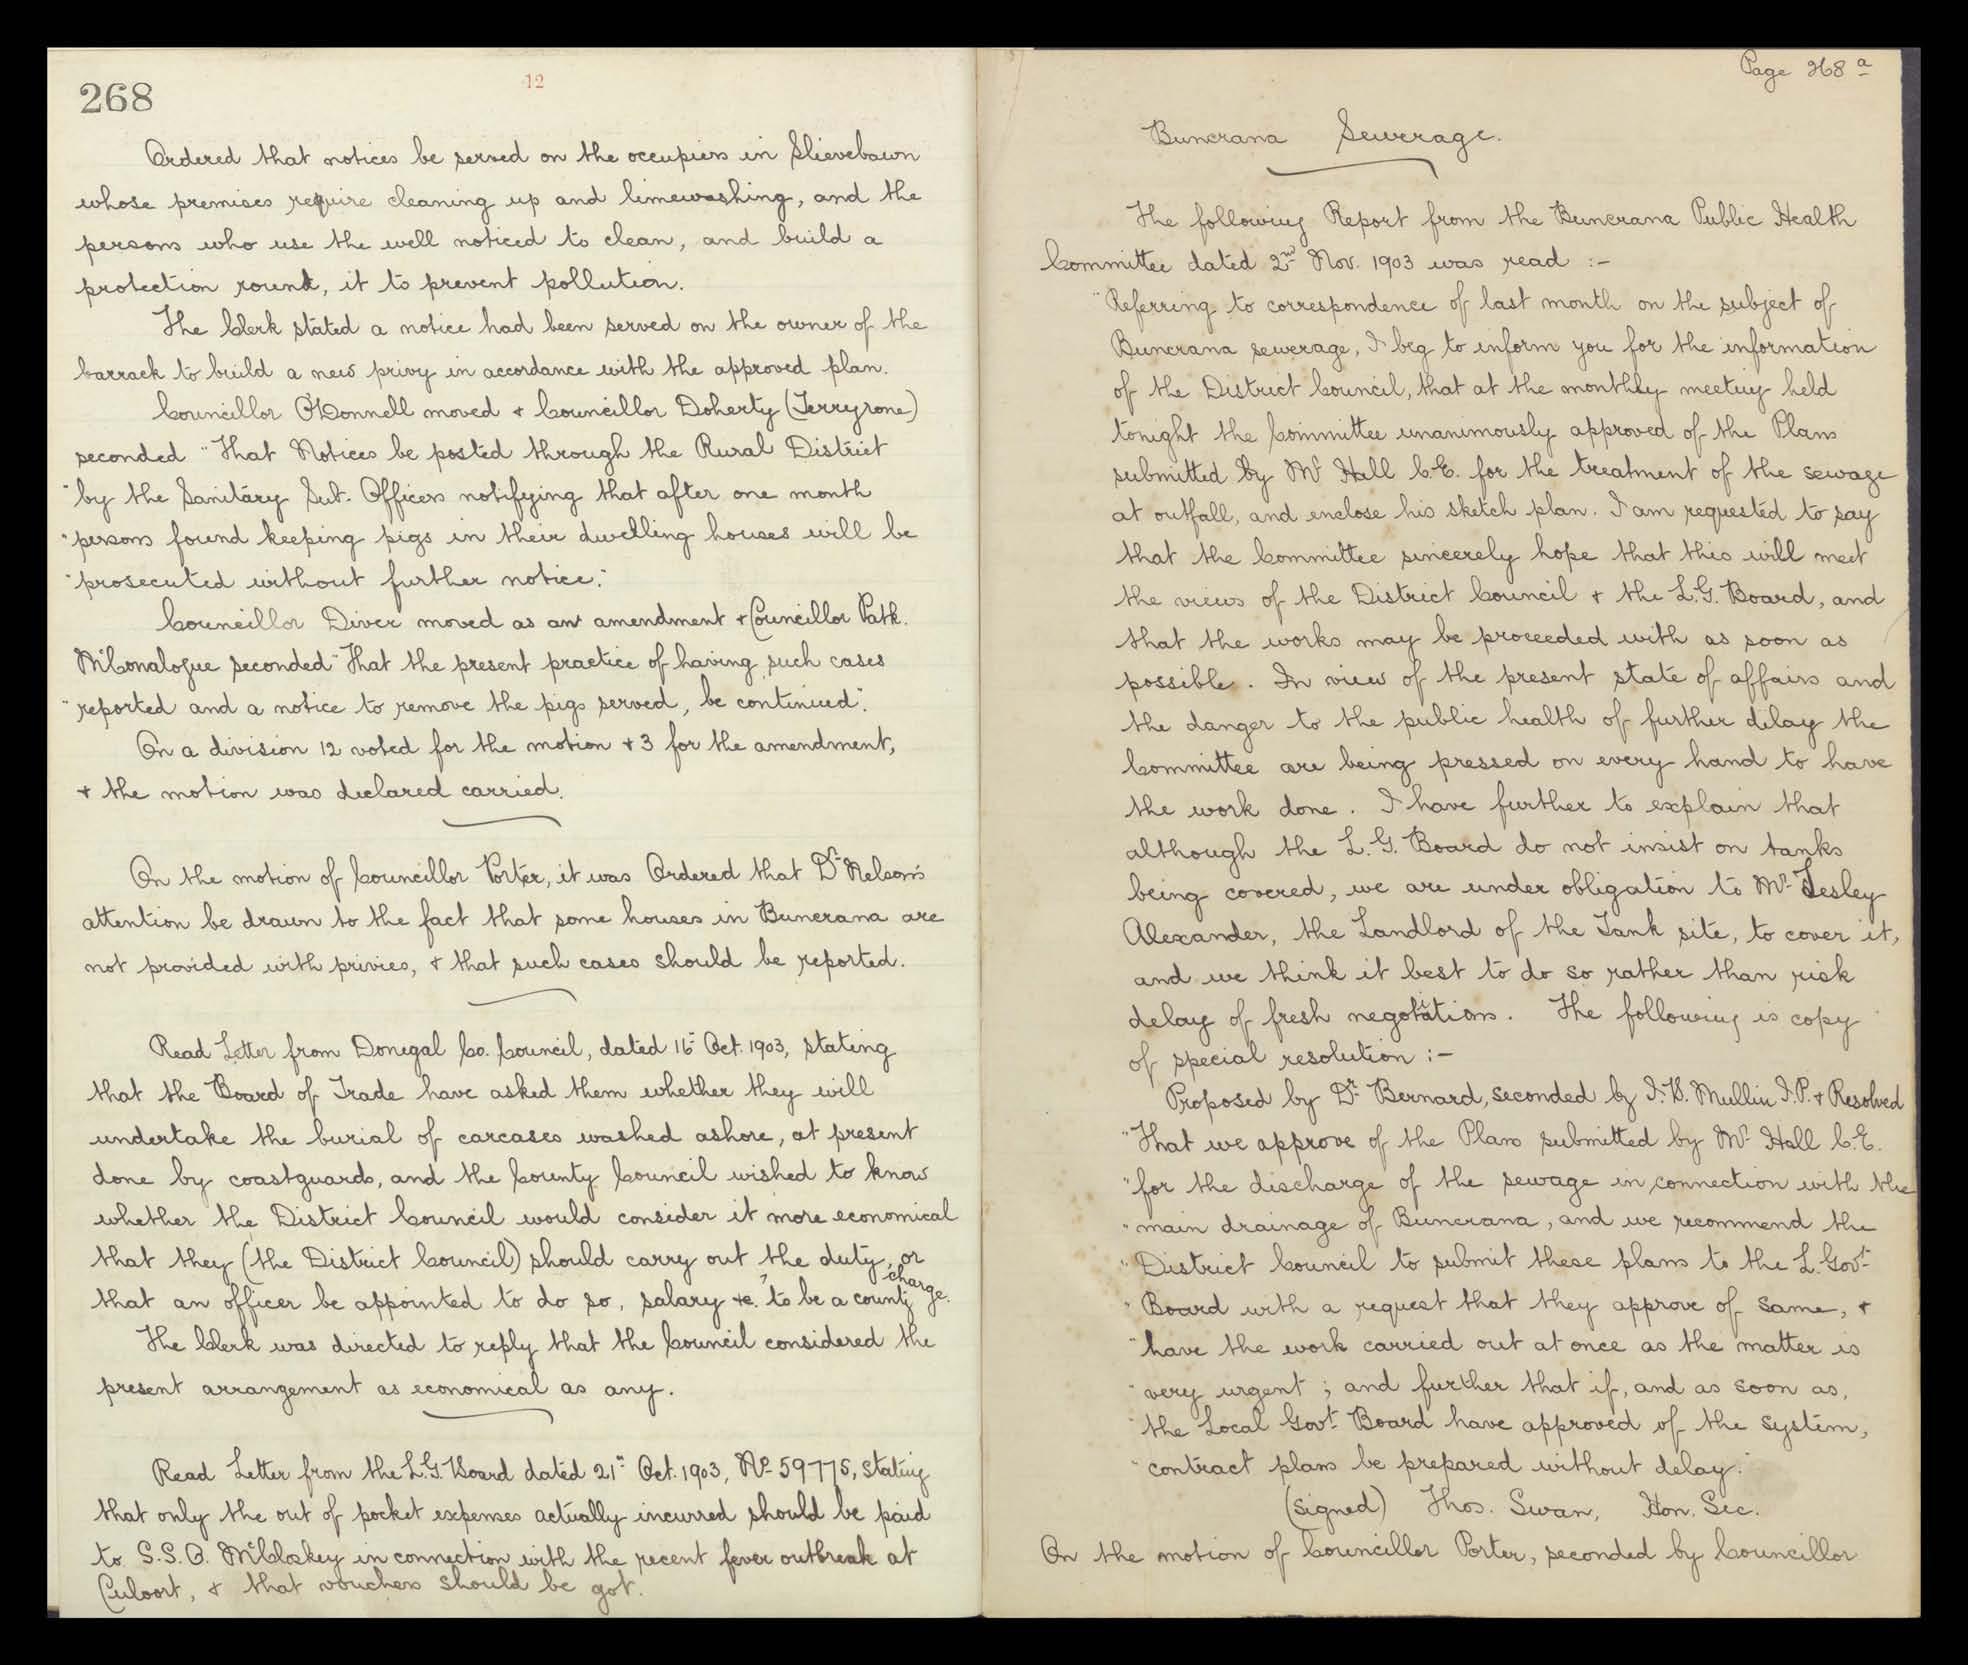 268
12
Ordered that notices be served on the occupiers in Slievebawn
whose premises require cleaning up and limewashing, and the
persons who use the well noticed to clean, and build a
protection round, it to prevent pollution.
The Clerk stated a notice had been served on the owner of the
barrack to build a new privy in accordance with the approved plan.
Councillor O'Donnell moved & Councillor Doherty (Terryrone)
seconded "That Notices be posted through the Rural District
"by the Sanitary Sub. Officers notifying that after one month
"persons found keeping pigs in their dwelling houses will be
"prosecuted without further notice."
Councillor Diver moved as an amendment & Councillor Patk.
McConalogue seconded "That the present practice of having such cases
"reported and a notice to remove the pigs served, be continued".
On a division 12 voted for the motion & 3 for the amendment,
& the motion was declared carried.
On the motion of Councillor Porter, it was Ordered that Dr. Nelson's
attention be drawn to the fact that some houses in Buncrana are
not provided with privies, & that such cases should be reported.
Read Letter from Donegal Co. Council, dated 16th Oct. 1903, stating
that the Board of Trade have asked them whether they will
undertake the burial of carcases washed ashore, at present
done by coastguards, and the County Council wished to know
whether the District Council would consider it more economical
that they (the District Council) should carry out the duty, or
that an officer be appointed to do so, salary &c. to be a county charge.
The Clerk was directed to reply that the Council considered the
present arrangement as economical as any.
Read Letter from the L.G. Board dated 21st Oct. 1903, No. 59775, stating
that only the out of pocket expenses actually incurred should be paid
to S.S.O. McCloskey in connection with the recent fever outbreak at
Culoort, & that vouchers should be got.
Page 268 a
Buncrana Sewerage.
The following Report from the Buncrana Public Health
Committee dated 2nd Nov. 1903 was read :-
"Referring to correspondence of last month on the subject of
Buncrana sewerage, I beg to inform you for the information
of the District Council, that at the monthly meeting held
tonight the Committee unanimously approved of the Plans
submitted by Mr Hall C.E. for the treatment of the sewage
at outfall, and enclose his sketch plan. I am requested to say
that the Committee sincerely hope that this will meet
the views of the District Council & the L.G. Board, and
that the works may be proceeded with as soon as
possible. In view of the present state of affairs and
the danger to the public health of further delay the
Committee are being pressed on every hand to have
the work done. I have further to explain that
although the L.G. Board do not insist on tanks
being covered, we are under obligation to Mr. Lesley
Alexander, the Landlord of the Tank site, to cover it,
and we think it best to do so rather than risk
delay of fresh negotiations. The following is copy
of special resolution :-
Proposed by Dr. Bernard, seconded by J. D. Mullin J.P. & Resolved
"That we approve of the Plans submitted by Mr. Hall C.E.
"for the discharge of the sewage in connection with the
"main drainage of Buncrana, and we recommend the
"District Council to submit these plans to the L. Govt.
"Board with a request that they approve of same, &
"have the work carried out at once as the matter is
"very urgent; and further that if, and as soon as,
"the Local Govt. Board have approved of the system,
"contract plans be prepared without delay."
(signed) Thos. Swan, Hon. Sec.
On the motion of Councillor Porter, seconded by Councillor